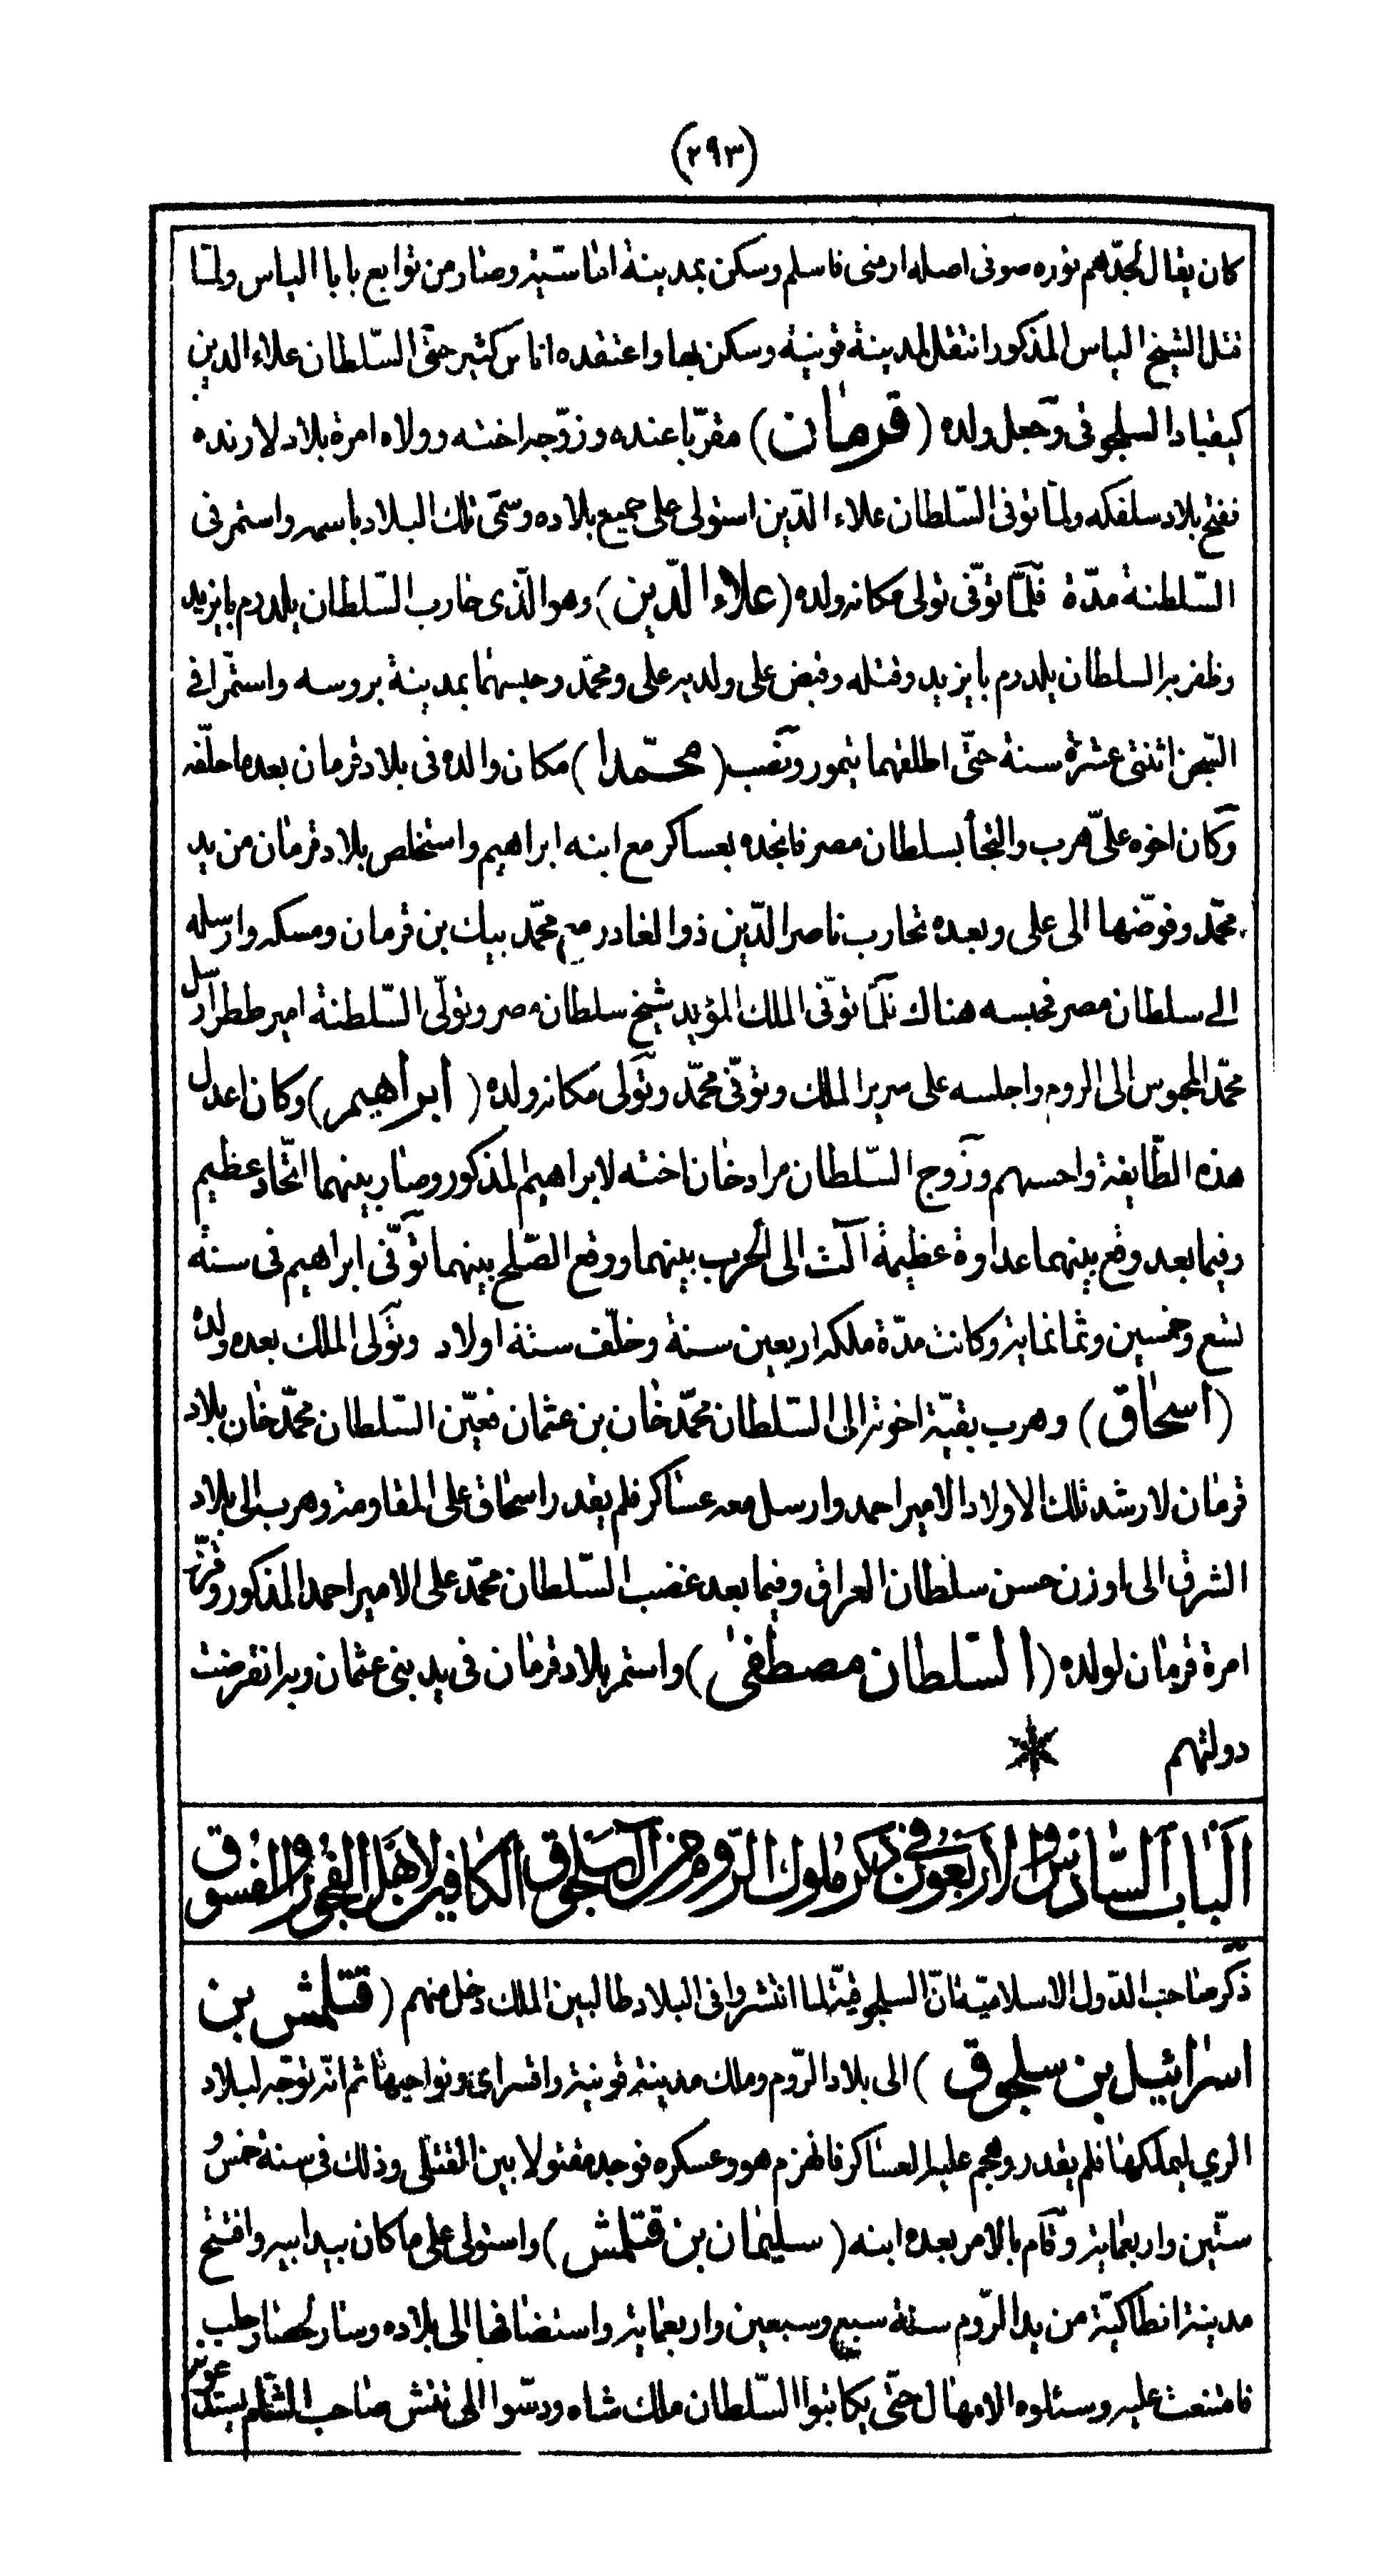 (٢٩٣)
كان يقال لجدّهم نوره صوفى اصله ارمنى فاسلم وسكن بمدينة اماسية وصار من توابع بابا الياس ولمّا
قتل الشيخ الياس المذكور انتقل لمدينة قونية وسكن بها واعتقده اناس كثير حتّى السّلطان علاء الدين
كيقباد السلجوقى وجعل ولده (قرمان) مقرّبا عنده وزوّجه اخته وولاه امرة بلاد لارنده
ففتح بلاد سلفكه ولمّا توفى السّلطان علاء الدّين استولى على جميع بلاده وسمّى تلك البلاد باسمه واستمر فى
السّلطنة مدّة فلمّا توفّى تولى مكانه ولده (علاء الدّين) وهو الّذى حارب السّلطان يلدرم بايزيد
وظفر به السلطان يلدرم بايزيد وقتله وقبض على ولديه على ومحمّد وحبسهما بمدينة بروسه واستمرّا فى
السّجن اثنتى عشرة سنة حتّى اطلقهما تيمور ونصب (محمّدا) مكان والده فى بلاد قرمان بعد ما حلّفه
وكان اخوه علىّ هرب والتجأ بسلطان مصر فانجده بعساكر مع ابنه ابراهيم واستخلص بلاد قرمان من يد
محمّد وفوّضها الى على وبعده تحارب ناصر الدّين ذو الغادر مع محمّد بيك بن قرمان ومسكه وارسله
الى سلطان مصر فحبسه هناك فلمّا توفّى الملك المؤيد شيخ سلطان مصر وتولّى السّلطنة امير ططر ارسل
محمّد المحبوس الى الروم واجلسه على سرير الملك وتوفّى محمّد وتولى مكانه ولده (ابراهيم) وكان اعدل
هذه الطّايفة واحسنهم وزوج السّلطان مراد خان اخته لابراهيم المذكور وصار بينهما اتّحاد عظيم
وفيما بعد وقع بينهما عداوة عظيمة آلت الى الحرب بينهما ووقع الصّلح بينهما توفّى ابراهيم فى سنة
تسع وخمسين وثمانماية وكانت مدّة ملكه اربعين سنة وخلّف ستة اولاد وتولى الملك بعده ولده
(اسحاق) وهرب بقيّة اخوته الى السّلطان محمّد خان بن عثمان فعيّن السّلطان محمّد خان بلاد
قرمان لارشد تلك الاولاد الامير احمد وارسل معه عساكر فلم يقدر اسحاق على المقاومة وهرب الى بلاد
الشرق الى اوزن حسن سلطان العراق وفيما بعد غضب السّلطان محمّد على الامير احمد المذكور وقرّر
امرة قرمان لولده (السّلطان مصطفى) واستمر بلاد قرمان فى يد بنى عثمان وبه انقرضت
دولتهم
الباب السّادس والاربعون فى ذكر ملوك الرّوم من آل سلجوق الكافين لاهل الفجور والفسوق
ذكر صاحب الدّول الاسلاميّة انّ السلجوقيّة لما انتشروا فى البلاد طالبين الملك دخل منهم (قتلمش بن
اسرائيل بن سلجوق) الى بلاد الرّوم وملك مدينة قونية واقسراى ونواحيها ثم انّه توجّه لبلاد
الرى ليملكها فلم يقدر وهجم عليه العساكر فانهزم هو وعسكره فوجد مقتولا بين القتلى وذلك فى سنة خمس و
ستّين واربعماية وقام بالامر بعده ابنه (سليمان بن قتلمش) واستولى على ما كان بيد ابيه وافتتح
مدينة انطاكيّة من يد الرّوم سنة سبع وسبعين واربعماية واستضافها الى بلاده وسار لحصار حلب
فامتنعت عليه وسئلوه الامهال حتّى يكاتبوا السّلطان ملك شاه ودسّوا الى تتش صاحب الشّام يستدعونه